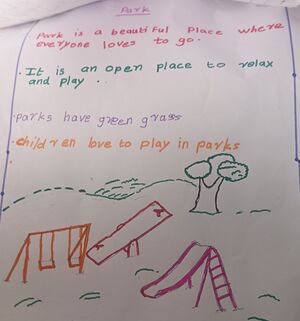 Park
Park is a beautiful place where
everyone loves to go.
· It is an open place to relax
and play .
· parks have green grass
· children love to play in parks